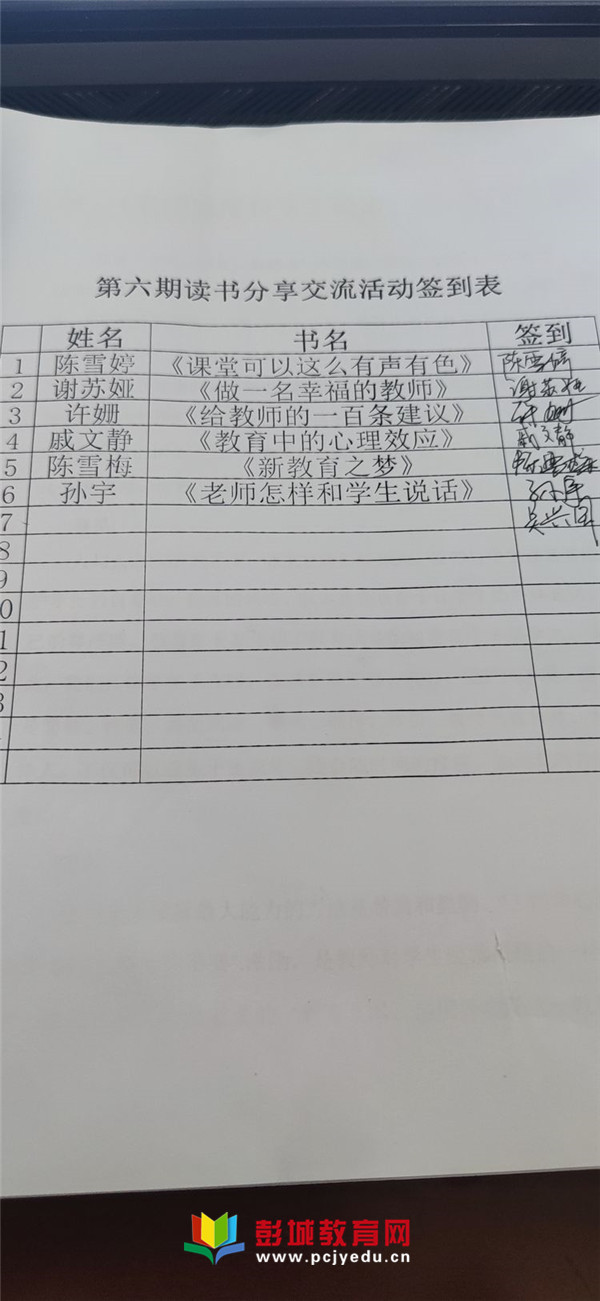 第六期读书分享交流活动签到表
姓名 书名 签到
1 陈雪婷 《课堂可以这么有声有色》 陈雪婷
2 谢苏娅 《做一名幸福的教师》 谢苏娅
3 许姗 《给教师的一百条建议》 许姗
4 戚文静 《教育中的心理效应》 戚文静
5 陈雪梅 《新教育之梦》 陈雪梅
6 孙宇 《老师怎样和学生说话》 孙宇
7 吴兴国
8
9
0
1
2
3
彭城教育网
www.pcjyedu.cn